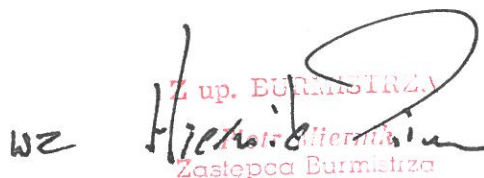 Z up. BURMISTRZA
wz
Piotr Miernik
Zastępca Burmistrza